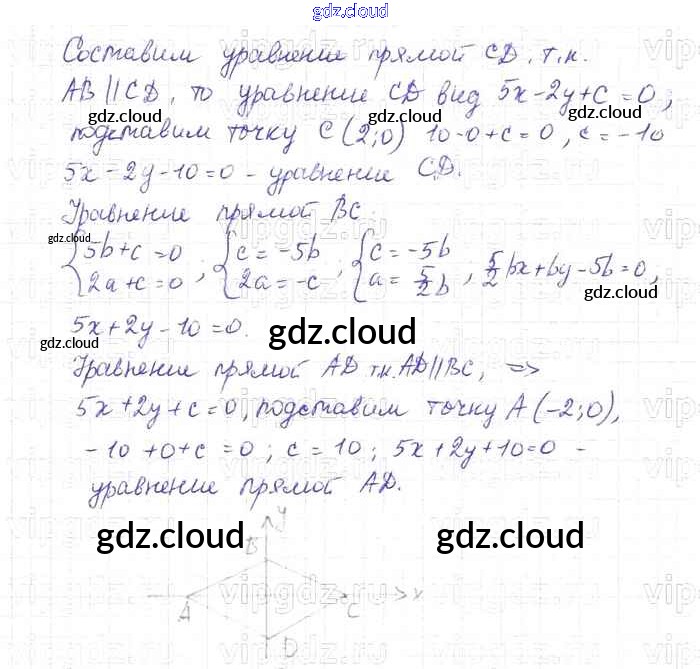 gdz.cloud
Составим уравнение прямой CD, т.к.
AB || CD, то уравнение CD вид 5x-2y+c=0;
gdz.cloud gdz.cloud
подставим точку C(2;0) 10-0+c=0, c=-10
5x-2y-10=0 - уравнение CD.
Уравнение прямой BC:
gdz.cloud
{5b+c=0 {c=-5b {c=-5b
{2a+c=0 ; {2a=-c ; {a=5/2b ; 5/2bx+by-5b=0,
gdz.cloud
5x+2y-10=0.
gdz.cloud gdz.cloud
Уравнение прямой AD т.к. AD || BC, =>
5x+2y+c=0, подставим точку A(-2;0),
-10+0+c=0; c=10; 5x+2y+10=0 -
уравнение прямой AD.
gdz.cloud gdz.cloud
y
B
A C x
D